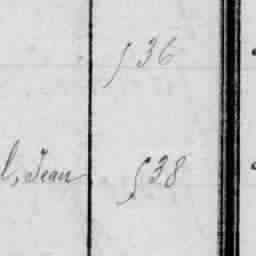 § 36
l, Jean § 38